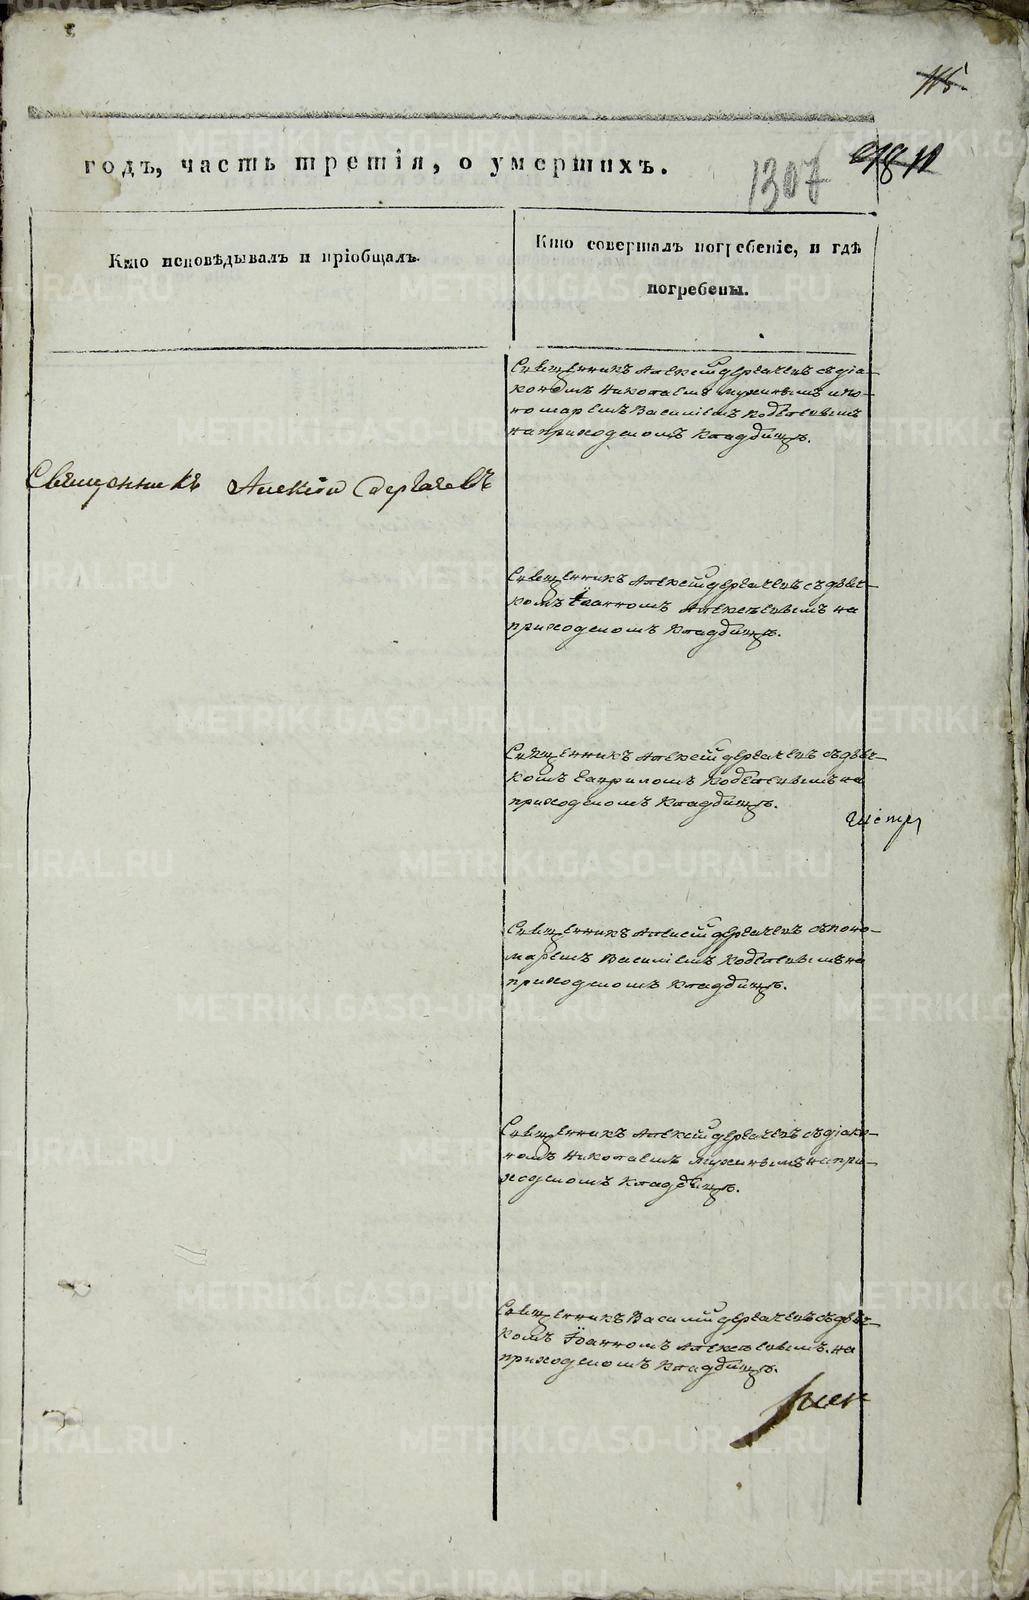 115.
годъ, часть третія, о умершихъ.
1307
Кто исповѣдывалъ и пріобщалъ.
Кто совершалъ погребеніе, и гдѣ
погребены.
Священникъ Алексѣй Дергачевъ съ діа-
кономъ Николаемъ Мухинымъ и по-
номаремъ Василіемъ Кобелевымъ
на приходскомъ кладбищѣ.
Священникъ Алексѣй Дергачевъ
Священникъ Алексѣй Дергачевъ съ дьяч-
комъ Іоанномъ Алексѣевымъ на
приходскомъ кладбищѣ.
Священникъ Алексѣй Дергачевъ съ дьяч-
комъ Гавриломъ Кобелевымъ на
приходскомъ кладбищѣ.
Священникъ Алексѣй Дергачевъ съ поно-
маремъ Василіемъ Кобелевымъ на
приходскомъ кладбищѣ.
Священникъ Алексѣй Дергачевъ съ діако-
номъ Николаемъ Мухинымъ на при-
ходскомъ кладбищѣ.
Священникъ Василій Дергачевъ съ дьяч-
комъ Іоанномъ Алексѣевымъ на
приходскомъ кладбищѣ.
METRIKI.GASO-URAL.RU